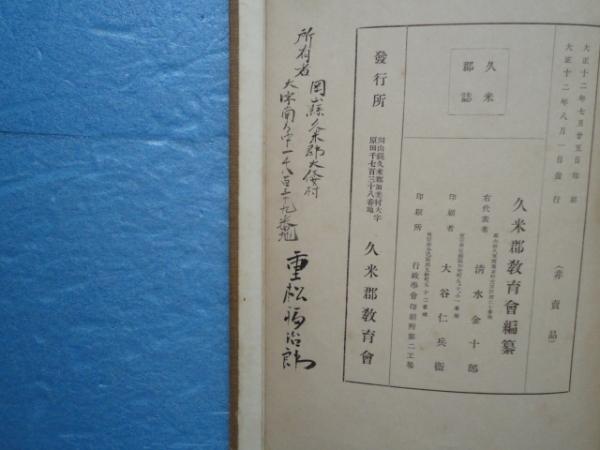 大正十二年七月廿五日印刷
大正十二年八月一日發行
(非賣品)
久米郡誌
久米郡教育會編纂
右代表者
清水金十郎
印刷者
大谷仁兵衛
印刷所
行政學會印刷所第二工場
發行所
岡山縣久米郡加美村大字
原田千七百三十八番地
久米郡教育會
所有者
岡山縣久米郡大倭村
重松福治郎